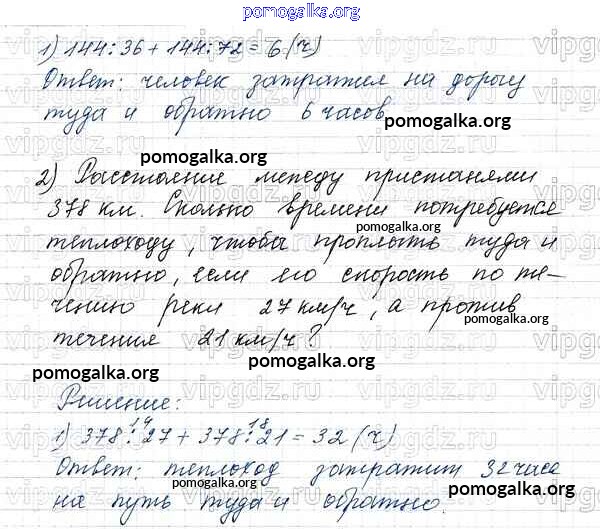 pomogalka.org
1) 144:36 + 144:72 = 6 (ч)
Ответ: человек затратил на дорогу
туда и обратно 6 часов
pomogalka.org
pomogalka.org
2) Расстояние между пристанями
378 км. Сколько времени потребуется
pomogalka.org
теплоходу, чтобы проплыть туда и
обратно, если его скорость по те-
чению реки 27 км/ч, а против
pomogalka.org
течения 21 км/ч?
pomogalka.org
pomogalka.org
Решение:
14 18
1) 378:27 + 378:21 = 32 (ч)
Ответ: теплоход затратит 32 часа
на путь туда и обратно.
pomogalka.org
vipgdz.ru